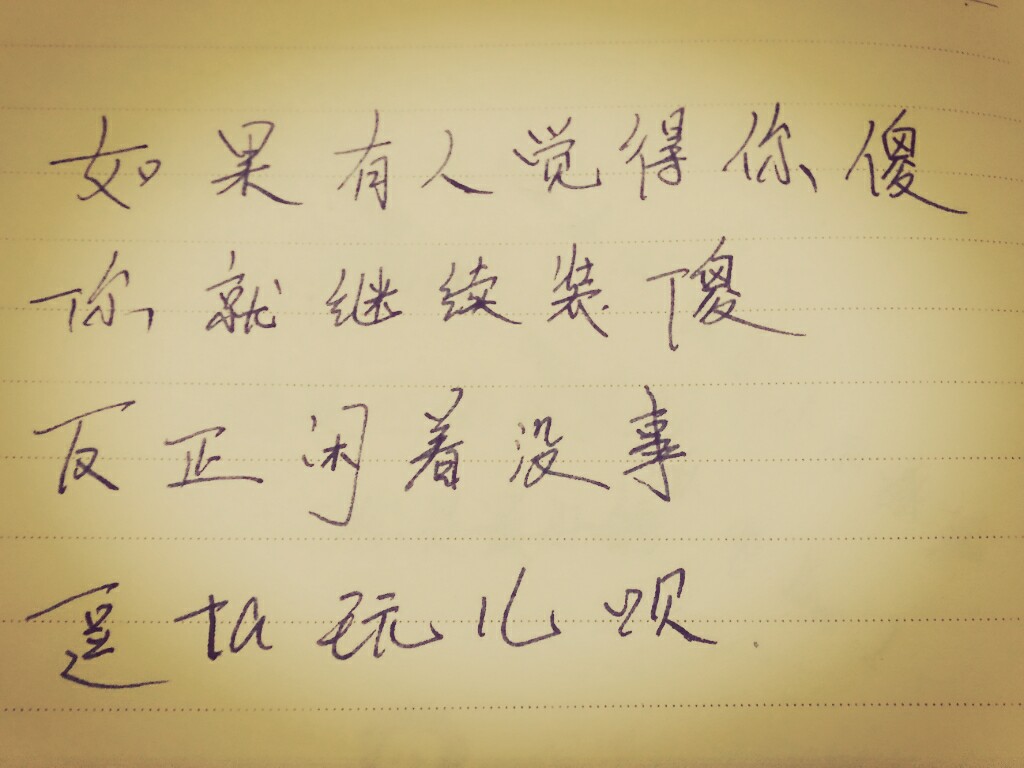 如果有人觉得你傻
你就继续装傻
反正闲着没事
逗ta玩儿呗.